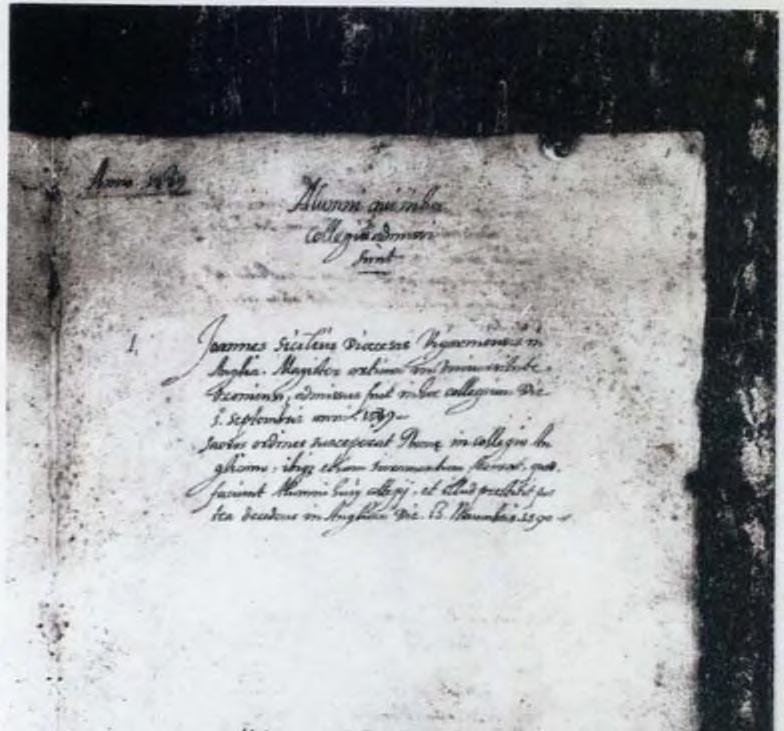 Anno 1589
Alumni qui in hoc
collegio admissi
sunt
1. Joannes Sicilius Diocesis Vigorniensis in
Anglia. Magister artium in
admissus fuit in hoc collegium Die
1. Septembris anni 1589
Sacros ordines susceperat Romę in collegio An
glicano, ibiq etiam iuramentum quod
faciunt Alumni huiꝰ collegij, et illud prestitit pos
tea in Angliam Die 13. Novembris 1590